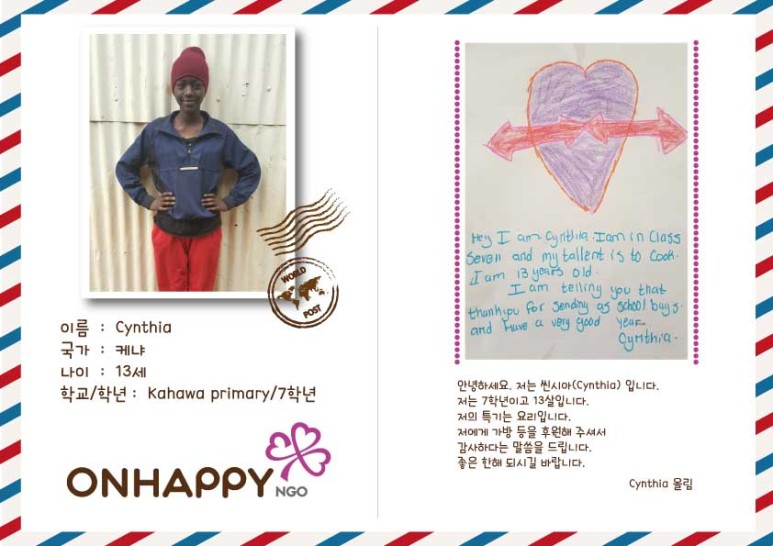 WORLD
POST
이름 : Cynthia
국가 : 케냐
나이 : 13세
학교/학년 : Kahawa primary/7학년
ONHAPPY
NGO
Hey I am Cynthia. I am in Class
Seven and my tallent is to Cook.
I am 13 years old.
I am telling you that
thankyou for sending as school bags.
and have a very good year.
Cynthia.
안녕하세요. 저는 씬시아(Cynthia) 입니다.
저는 7학년이고 13살입니다.
저의 특기는 요리입니다.
저에게 가방 등을 후원해 주셔서
감사하다는 말씀을 드립니다.
좋은 한해 되시길 바랍니다.
Cynthia 올림